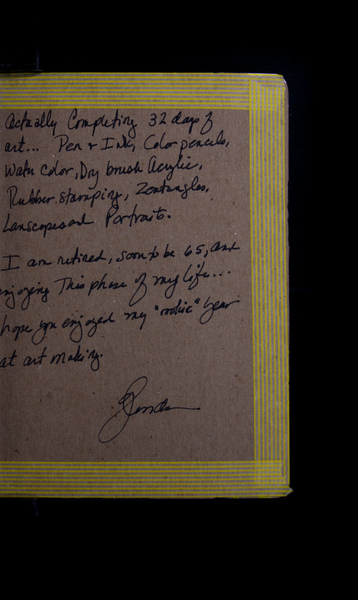 Actually Completing 32 days of
art... Pen + Ink, Color pencils,
Water color, Dry brush Acrylic,
Rubber stamping, Zentangles,
Lanscapes and Portraits.
I am retired, soon to be 65, and
enjoying This phase of my life...
hope you enjoyed my "rookie" year
at art making.